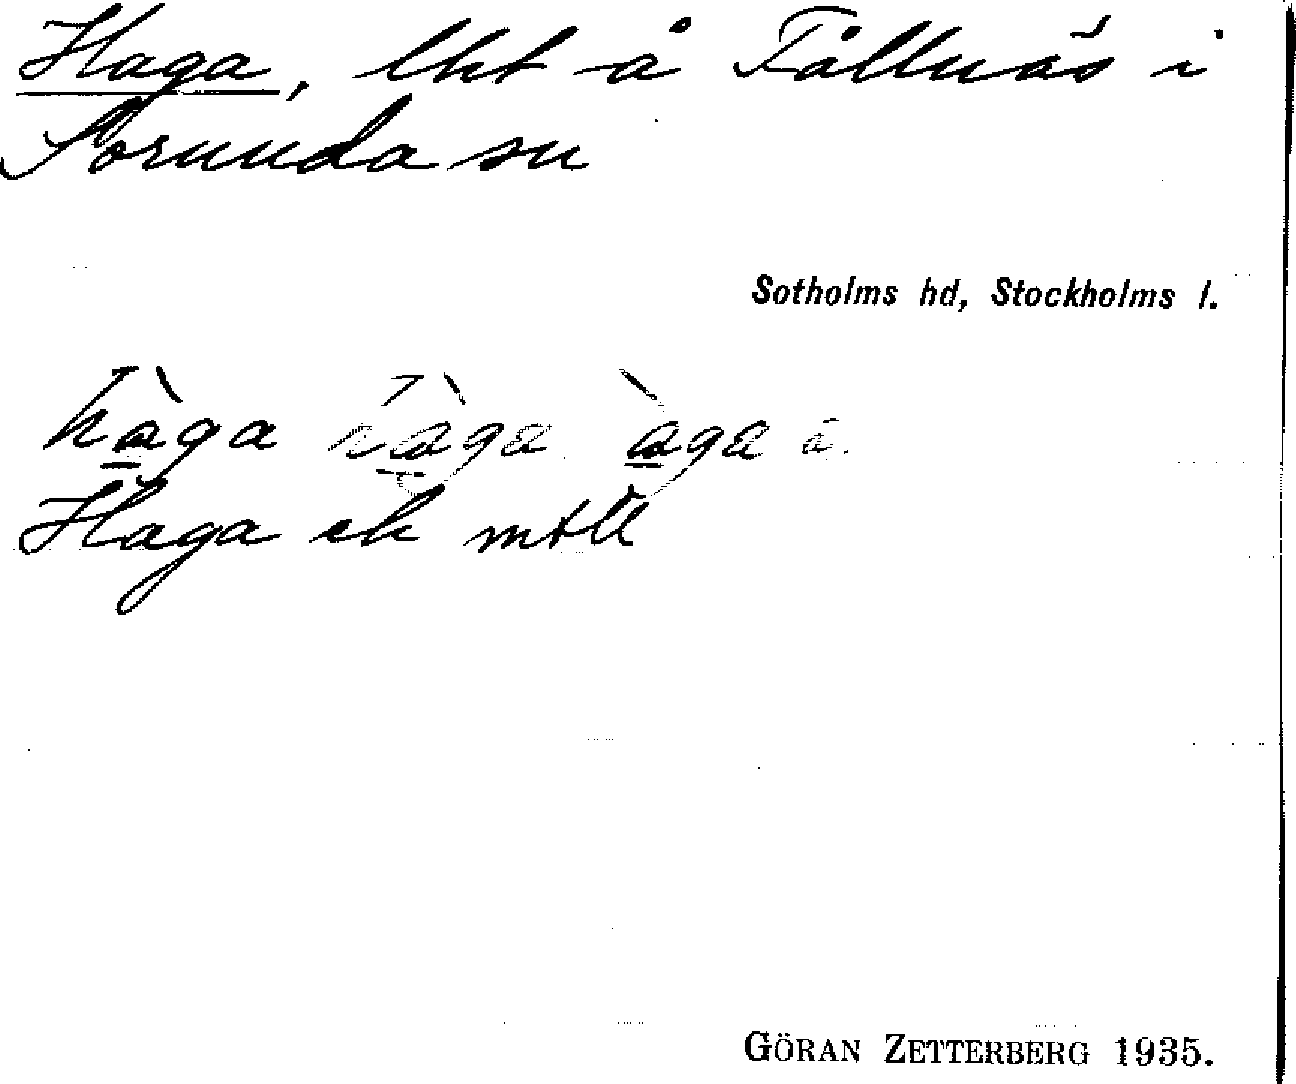 Haga, lht å Fållnäs i
Sorunda sn
Sotholms hd, Stockholms l.
hàga hàga àga
Haga ek
GÖRAN ZETTERBERG 1935.